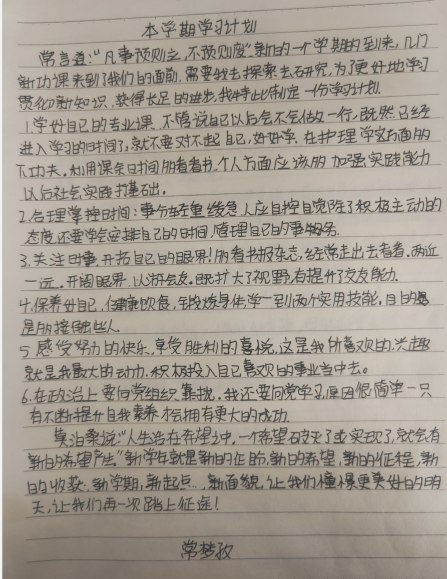 本学期学习计划
常言道:“凡事预则立,不预则废”新的一个学期的到来,几门
新功课来到了我们的面前,需要我去探索去研究,为了更好地学习
贯彻新知识,获得长足的进步,我特此制定一份学习计划。
1.学好自己的专业课,不管说自己以后会不会做一行,既然已经
进入学习的时间了,就不要对不起自己,好好学,在护理学方面多
下功夫。利用课余时间多看看书,个人方面应该多加强实践能力
以后社会实践打基础。
2.合理掌控时间:事分轻重缓急,人应自控自觉,除了积极主动的
态度,还要学会安排自己的时间,管理自己的事务。
3.关注时事,开拓自己的眼界!多看书报杂志,经常走出去看看,两近
一远。开阔眼界,以游会友。既扩大了视野,有提升了交友能力。
4.保养好自己,健康饮食,锻炼身体,学一到两个实用技能,目的
是多接触些人
5.感受努力的快乐,享受胜利的喜悦,这是我所喜欢的,兴趣
就是我最大的动力,积极投入自己喜欢的事业当中去。
6.在政治上要向党组织靠拢,我还要向党学习,原因很简单—只
有不断提升自我素养,才会拥有更大的成功。
莫泊桑说:“人生活在希望之中,一个希望破灭了或实现了,就会有
新的希望产生。”新学年就是新的征的,新的希望,新的征程,新
的收获,新学期,新起点,新面貌,让我们憧憬更美好的明
天,让我们再一次踏上征途!
常梦孜